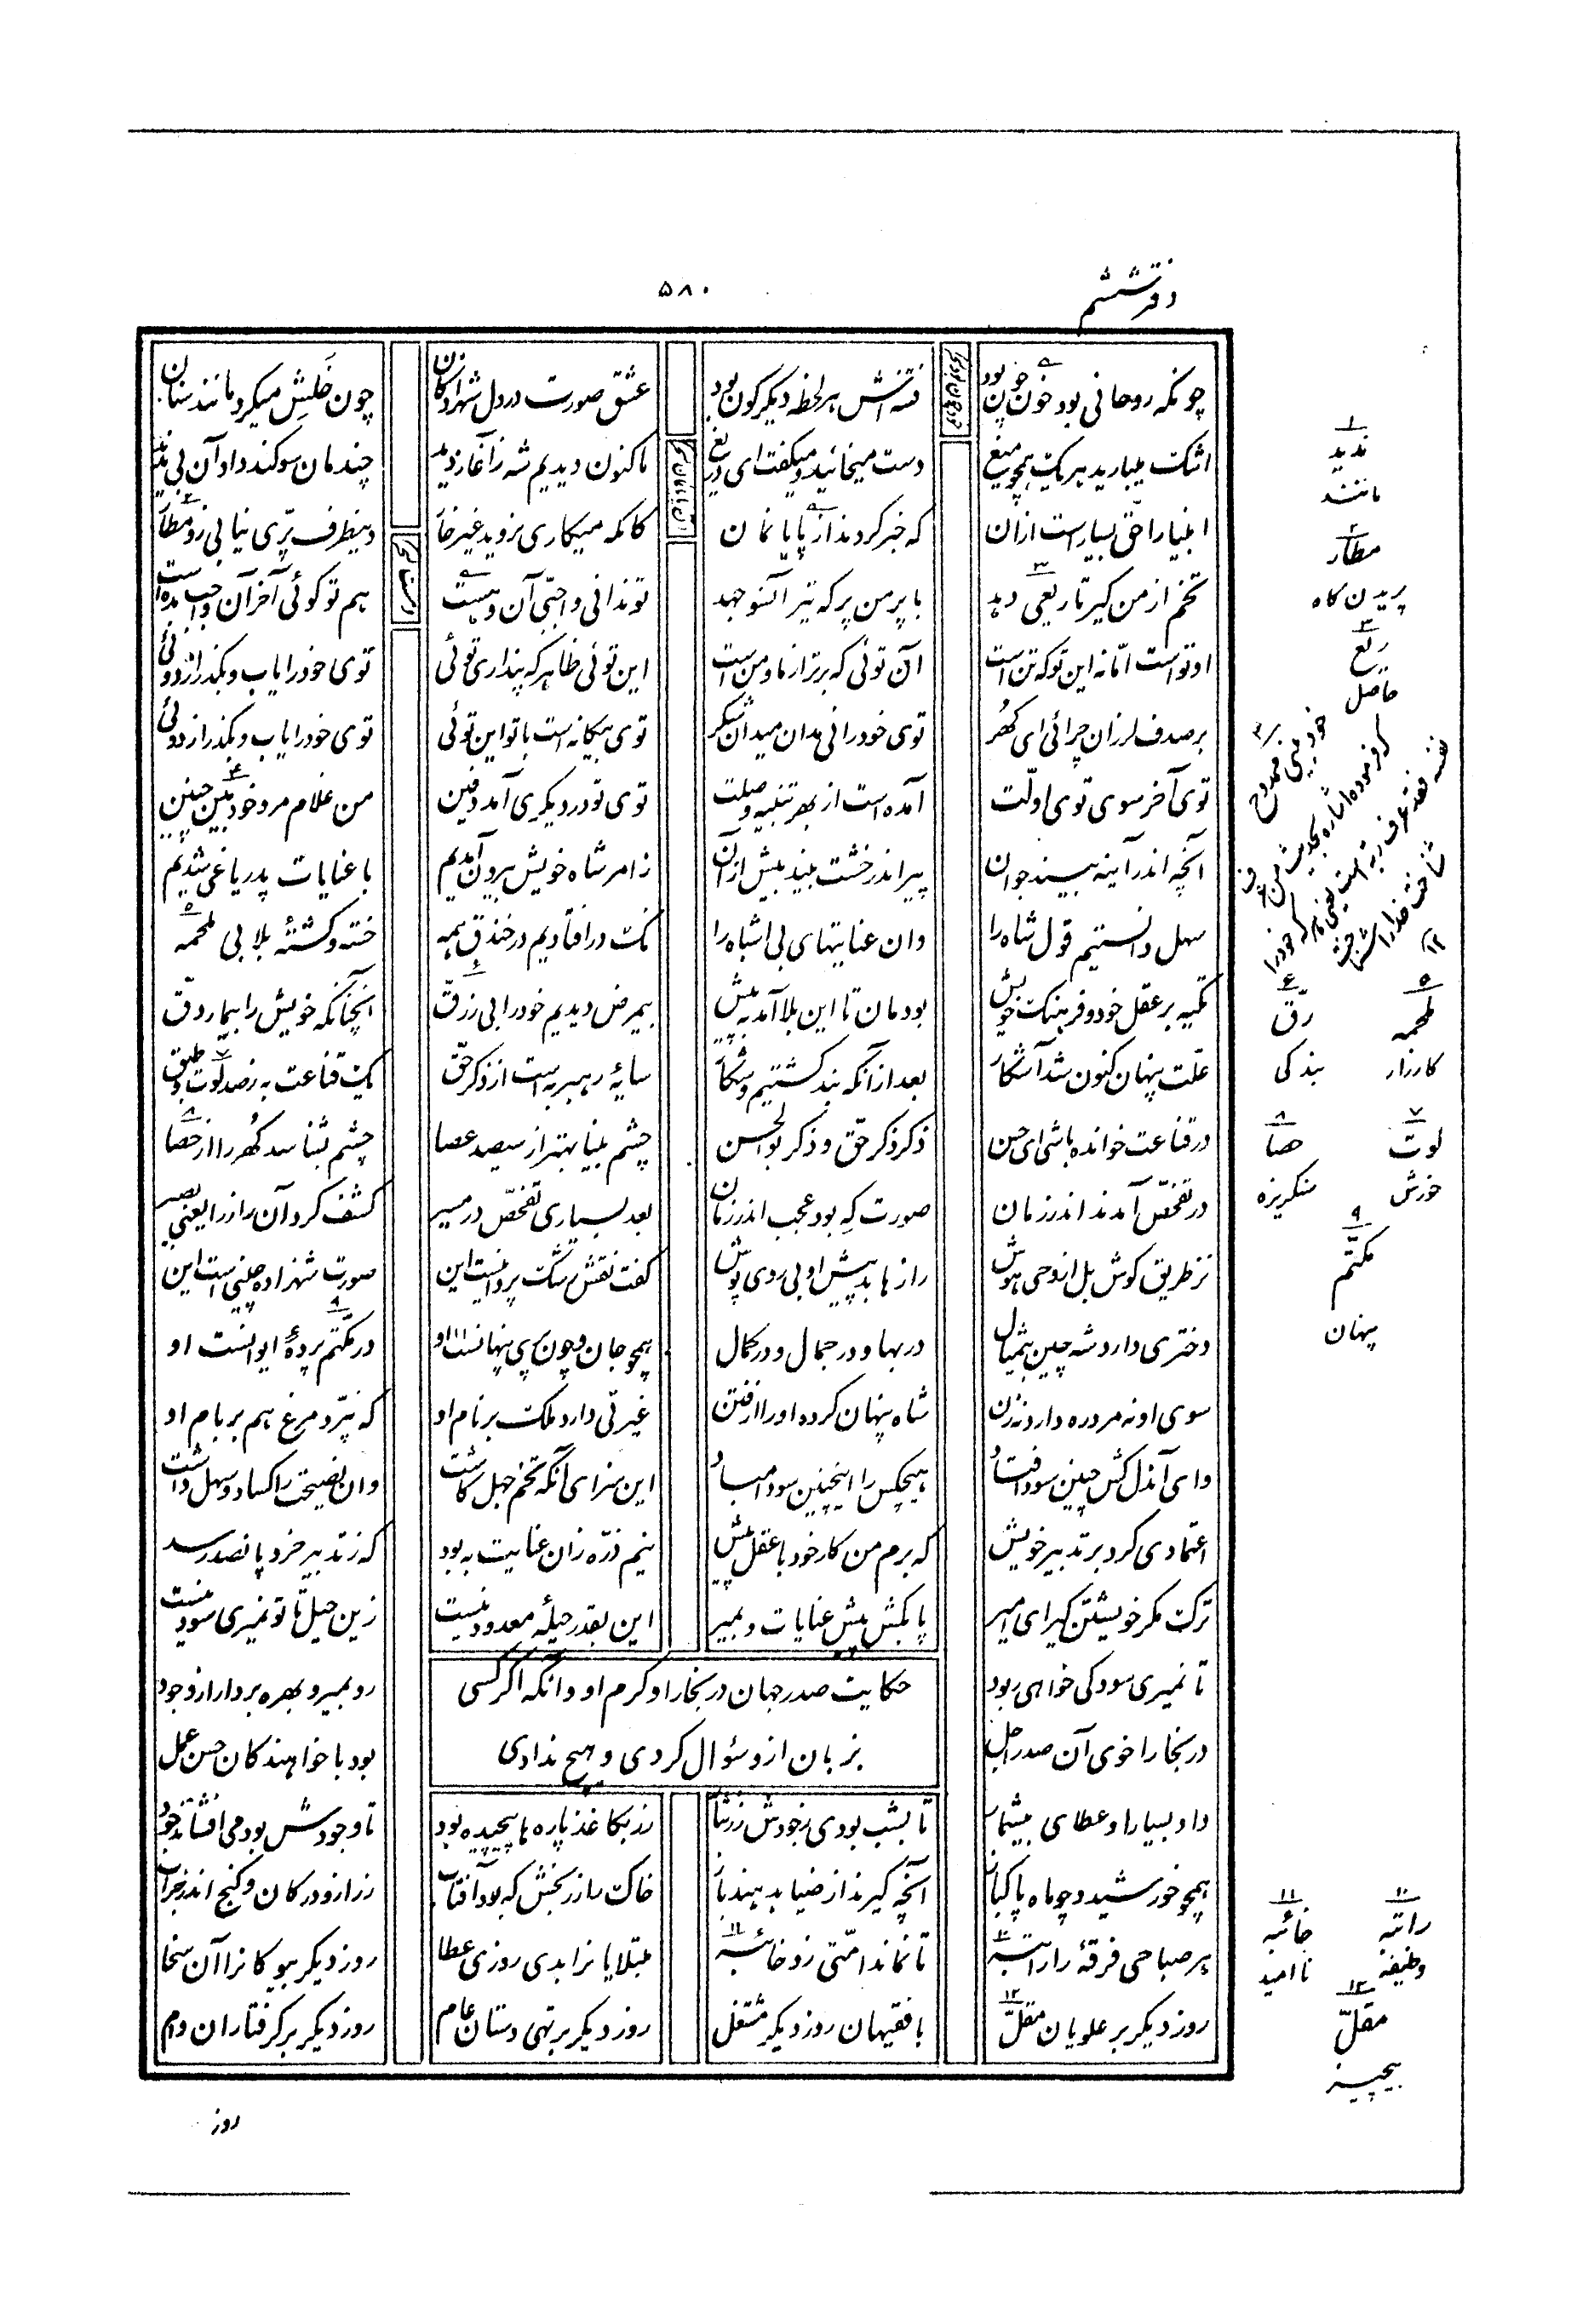 دفتر ششم
۵۸۰
چونکه روحانی بود خون چون بود فتنه‌اش هر لحظه دیگرگون بود عشق صورت در دل شهزادگان چون خلش میکرد مانند سنان
اشک میبارید هر یک همچو میغ دست میخائید و میگفت ای دریغ ما کنون دیدیم شه ز آغاز دید چندمان سوگند داد آن بی ندید
انبیا را حق بسیار است ازان که خبر کردند از پایانمان کانکه میکاری نروید غیر خار وینطرف پری نیابی زو مطار
تخم از من گیر تا ریعی دهد با پر من پر که تیر آنسو جهد تو ندانی واجبی آن و هست هم تو گوئی آخر آن واجب بده است
او تو است اما نه این تو که تن است آن توئی که برتر از ما و من است این توئی ظاهر که پنداری توئی توی خود را یاب و بگذر از دوئی
بر صدف لرزان چرائی ای گهر توی خود را نی بدان میدان شکر توی بیگانه است با تو این توئی توی خود را یاب و بگذر از دوئی
توی آخر سوی توی اولت آمده است از بهر تنبیه و صلت توی تو در دیگری آمد دفین من غلام مرد خود بین چنین
آنچه اندر آینه بیند جوان پیر اندر خشت بیند بیش ازان ز امر شاه خویش بیرون آمدیم با عنایات پدر یاغی شدیم
سهل دانستیم قول شاه را وان عنایتهای بی اشباه را نک درافتادیم در خندق همه خسته و کشته بلا بی ملحمه
تکیه بر عقل خود و فرهنگ خویش بودمان تا این بلا آمد به پیش بیمرض دیدیم خود را بی ز رق آنچنانکه خویش را بیمار دق
علت پنهان کنون شد آشکار بعد ازآنکه بند گشتیم و شکار سایهٔ رهبر به است از ذکر حق یک قناعت به ز صد لوت و طبق
در قناعت خوانده باشی ای حسن ذکر ذکر حق و ذکر بوالحسن چشم بینا بهتر از سیصد عصا چشم بشناسد گهر را از حصا
در تفحص آمدند اندر زمان صورت که بود عجب اندر زمان بعد بسیاری تفحص در مسیر کشف کرد آن راز را یعنی بصیر
نز طریق گوش بل از وحی هوش رازها بد پیش او بی روی پوش گفت نقش رشک پروین است این صورت شهزاده چین است این
دختری دارد شه چین بیمثال در بها و در جمال و در کمال همچو جان و چون پری پنهانست او در مکتم پردهٔ ایوانست او
سوی او نه مرد ره دارد نه زن شاه پنهان کرده او را از فتن غیرتی دارد ملک بر نام او که نپرد مرغ هم بر بام او
وای آندل کش چنین سودا فتاد هیچکس را اینچنین سودا مباد این سزای آنکه تخم جهل کاشت وان نصیحت را کساد و سهل داشت
اعتمادی کرد بر تدبیر خویش که برم من کار خود با عقل پیش نیم ذره زان عنایت به بود که ز تدبیر خرد پانصد رسد
ترک مکر خویشتن گیر ای امیر پا بکش پیش عنایات و بمیر این بقدر حیلهٔ معدود نیست زین حیل تا تو نمیری سود نیست
حکایت صدر جهان در بخارا و کرم او و آنکه اگر کسی
بزبان ازو سئوال کردی و هیچ ندادی
تا نمیری سود کی خواهی ربود رو بمیر و بهره بردار از وجود
در بخارا خوی آن صدر اجل بود با خواهندگان حسن عمل
داد بسیار او عطای بیشمار تا بشب بودی ز جودش زر نثار زر بکاغذ پاره‌ها پیچیده بود تا وجودش بود می افشاند جود
همچو خورشید و چو ماه پاکباز آنچه گیرند از ضیا بدهند باز خاک را زربخش که بود آفتاب زر ازو در کان و گنج اندر خراب
هر صباحی فرقهٔ را راتبه تا نماند امتی زو خائبه مبتلایان را بدی روزی عطا روز دیگر بیوگانرا آن سخا
روز دیگر بر علویان مقل با فقیهان روز دیگر مشتغل روز دیگر بر تهی دستان عام روز دیگر بر گرفتاران وام
روز
۱
ندید
مانند
۲
مطار
پریدن گاه
۳
ریع
حاصل
۵
ملحمه
کارزار
۶
رق
بندگی
۷
لوت
خورش
۸
حصا
سنگریزه
۹
مکتم
پنهان
۱۰
راتبه
وظیفه
۱۱
خائبه
ناامید
۱۲
مقل
بیچیز